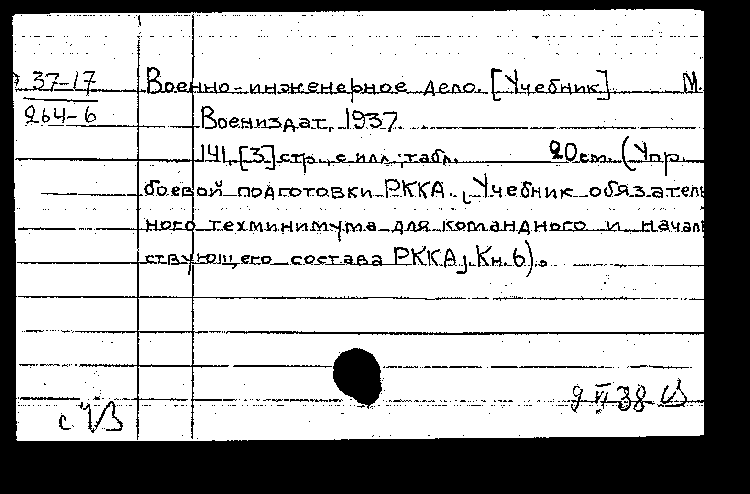 37-17
264-6
Военно-инженерное дело. [Учебник] М.
Воениздат, 1937.
141, [3] стр., с илл.; табл. 20 см. (Упр.
боевой подготовки РККА. [Учебник обязатель
ного техминимума для командного и началь
ствующего состава РККА]. Кн. 6).
9 VI 38